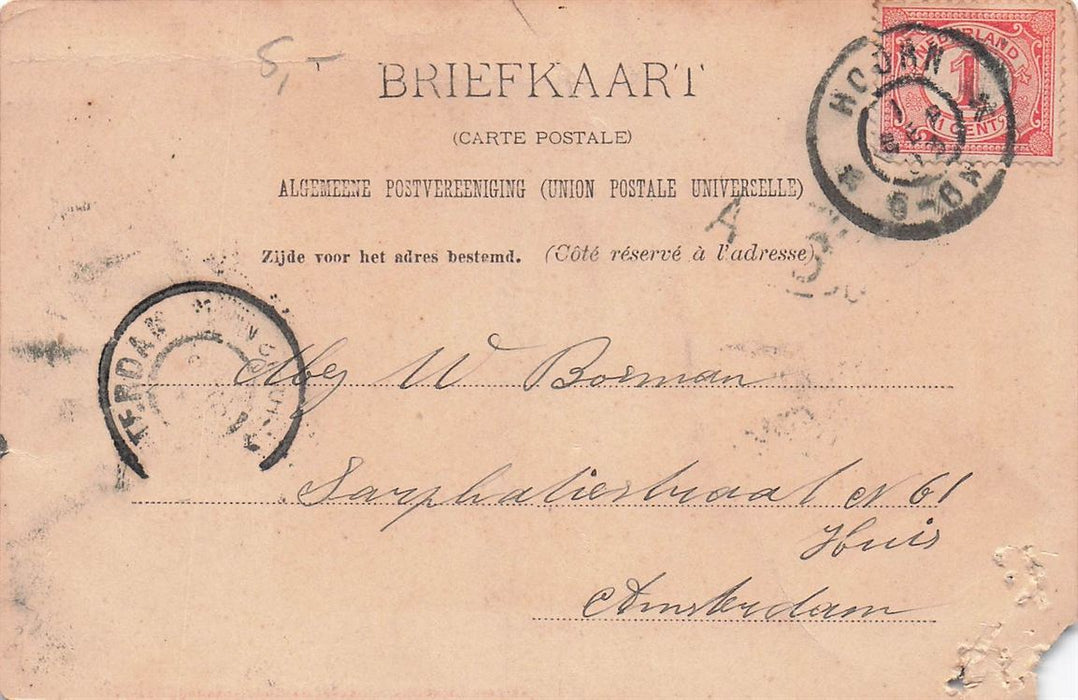 5,-
BRIEFKAART
(CARTE POSTALE)
ALGEMEENE POSTVEREENIGING (UNION POSTALE UNIVERSELLE)
Zijde voor het adres bestemd. (Côté réservé à l'adresse)
NEDERLAND
1
1 CENT
HOORN
A
W Borman
Sarphatiestraat N 61
Huis
Amsterdam